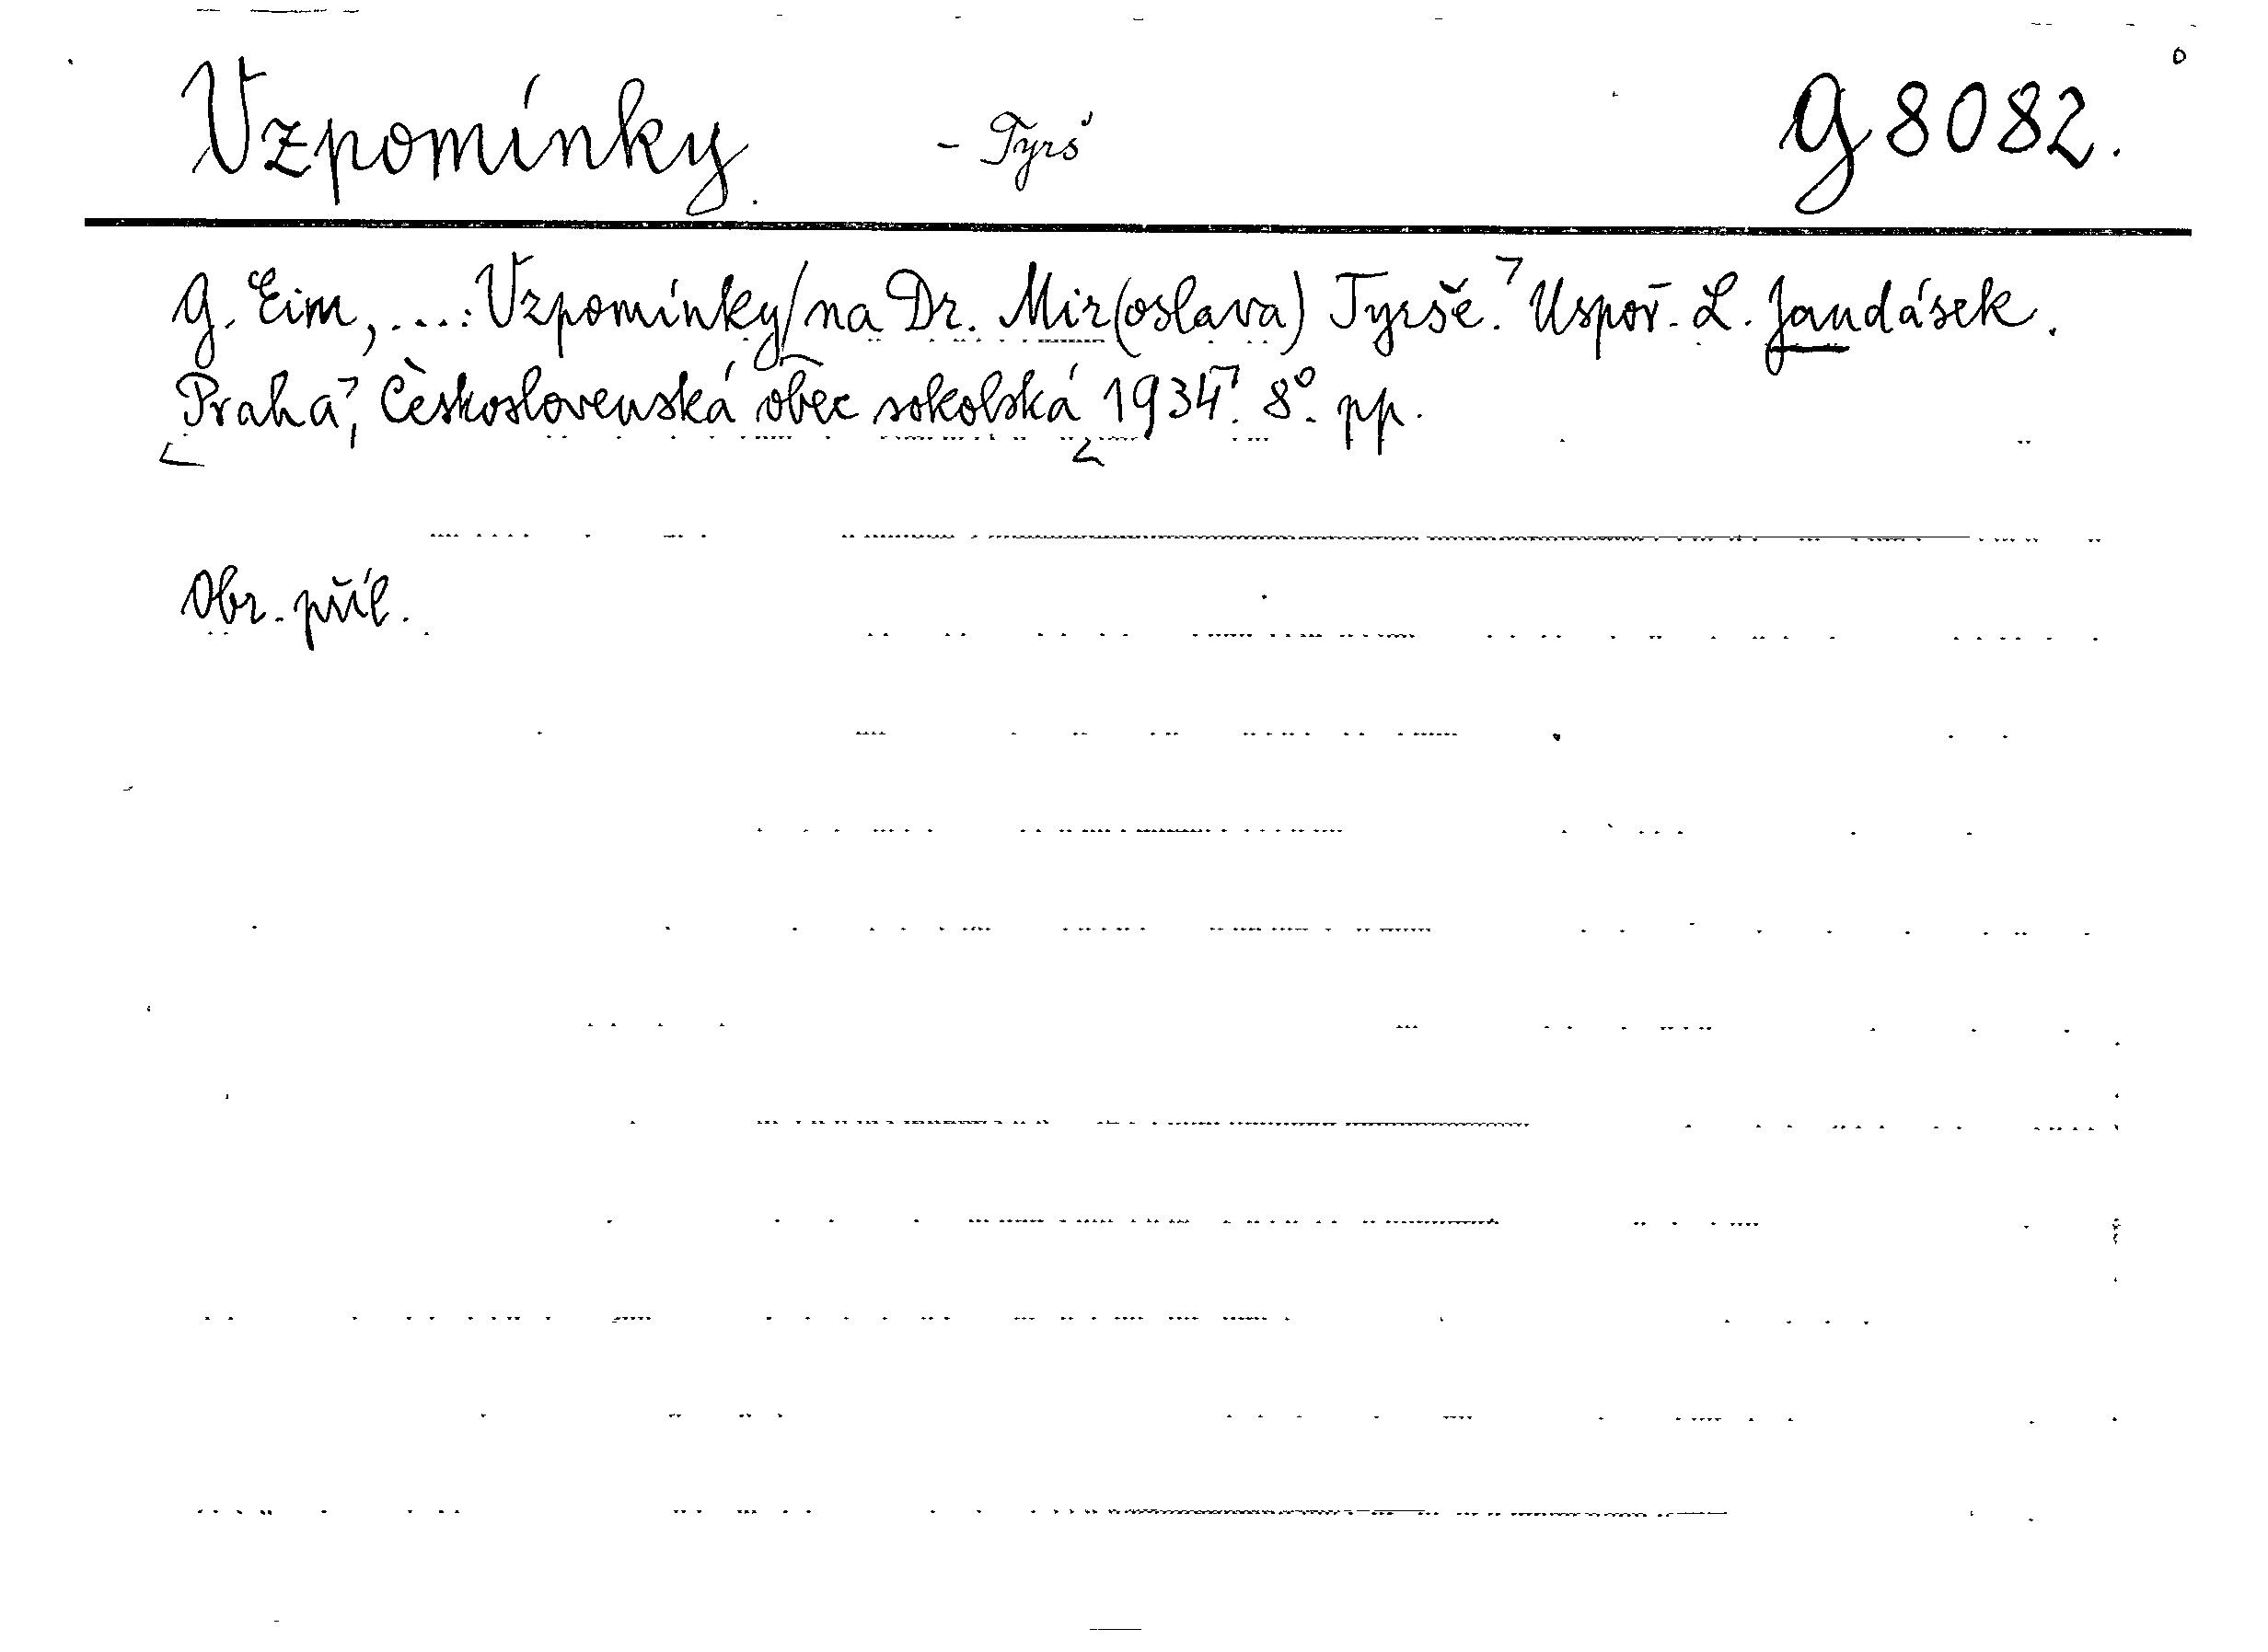 Vzpomínky. - Tyrš G 8082.
G. Eim,....: Vzpomínky/na Dr. Mir(oslava) Tyrše.⌝ Uspoř. L. Jandásek.
⌞Praha⌝, Československá obec sokolská ⌞1934⌝. 8°. pp.
Obr. příl.